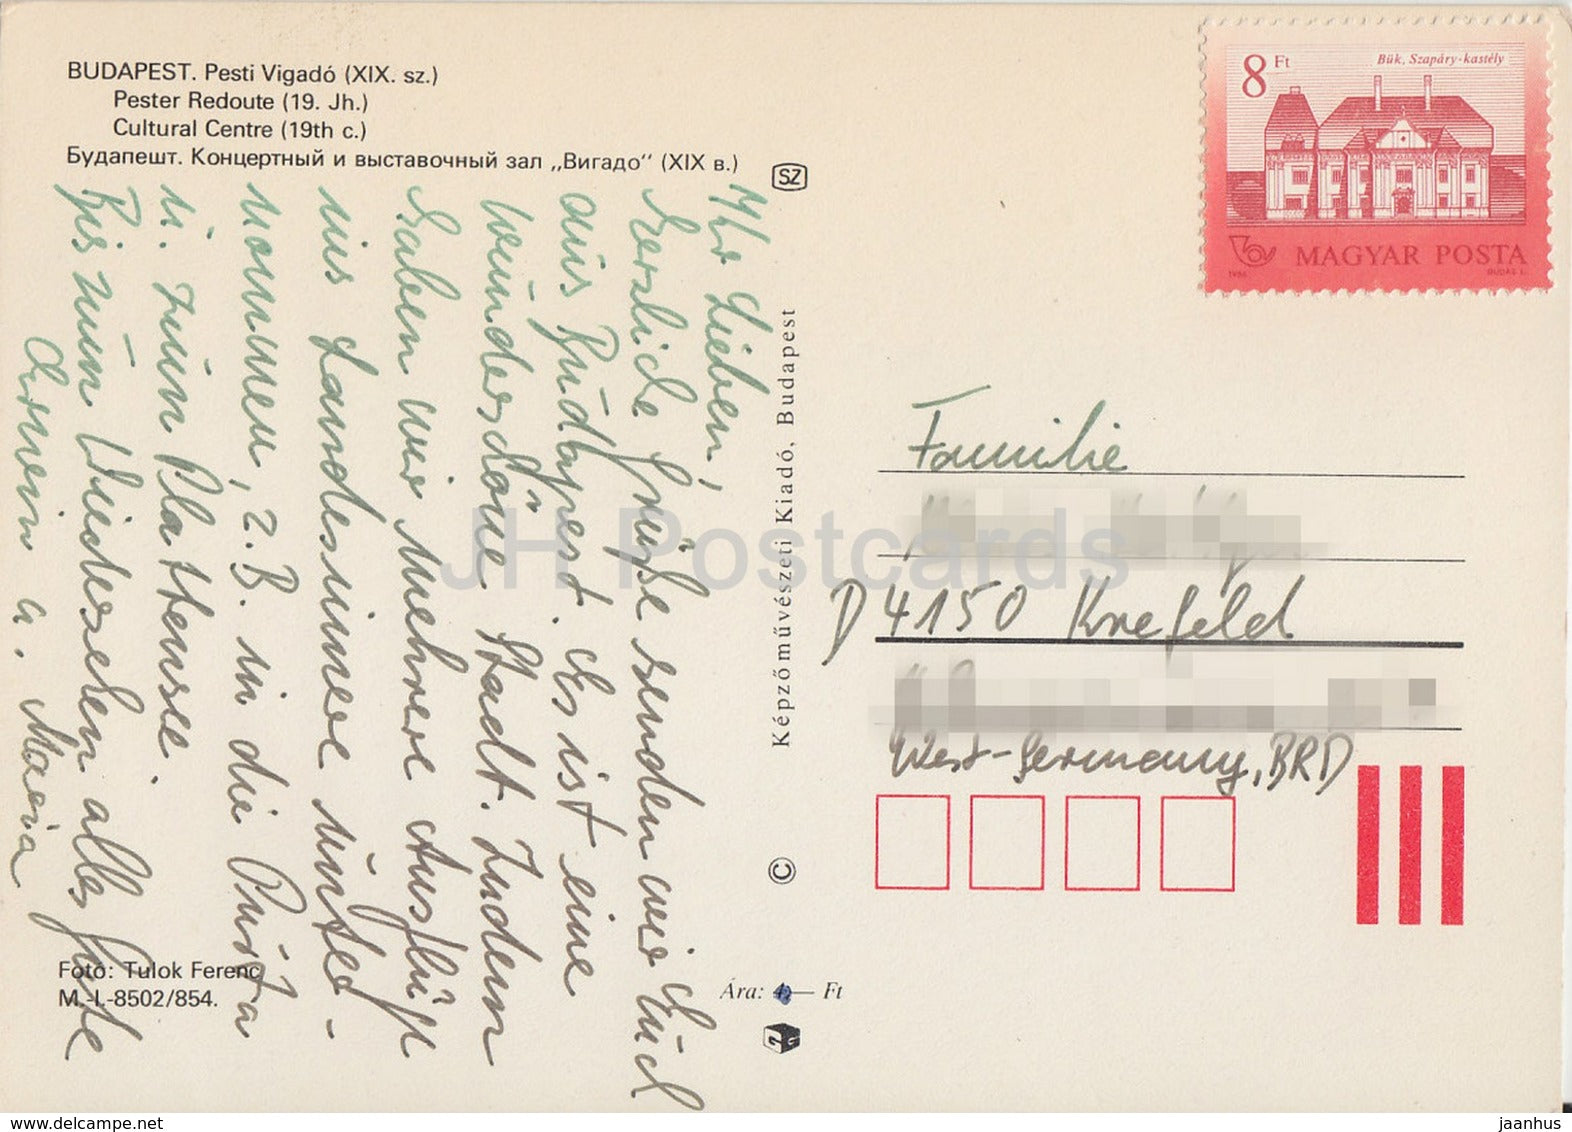 BUDAPEST. Pesti Vigadó (XIX. sz.)
Pester Redoute (19. Jh.)
Cultural Centre (19th c.)
Будапешт. Концертный и выставочный зал „Вигадо“ (XIX в.)
SZ
8 Ft
Bük, Szapáry-kastély
MAGYAR POSTA
1986
BUDAS L.
Ihr Lieben,
herzliche Grüße senden wir Euch
aus Budapest. Es ist eine
wunderschöne Stadt. Zudem
haben wir mehrere Ausflüge
ins Landesinnere unter-
nommen, z.B. in die Pusta
u. zum Plattensee.
Bis zum Wiedersehen alles Gute
Armin u. Maria
Képzőművészeti Kiadó, Budapest
©
Familie
D 4150 Krefeld
West-Germany, BRD
Fotó: Tulok Ferenc
M.-I.-8502/854.
Ára: 4,— Ft
JH Postcards
https://www.delcampe.net
jaanhus